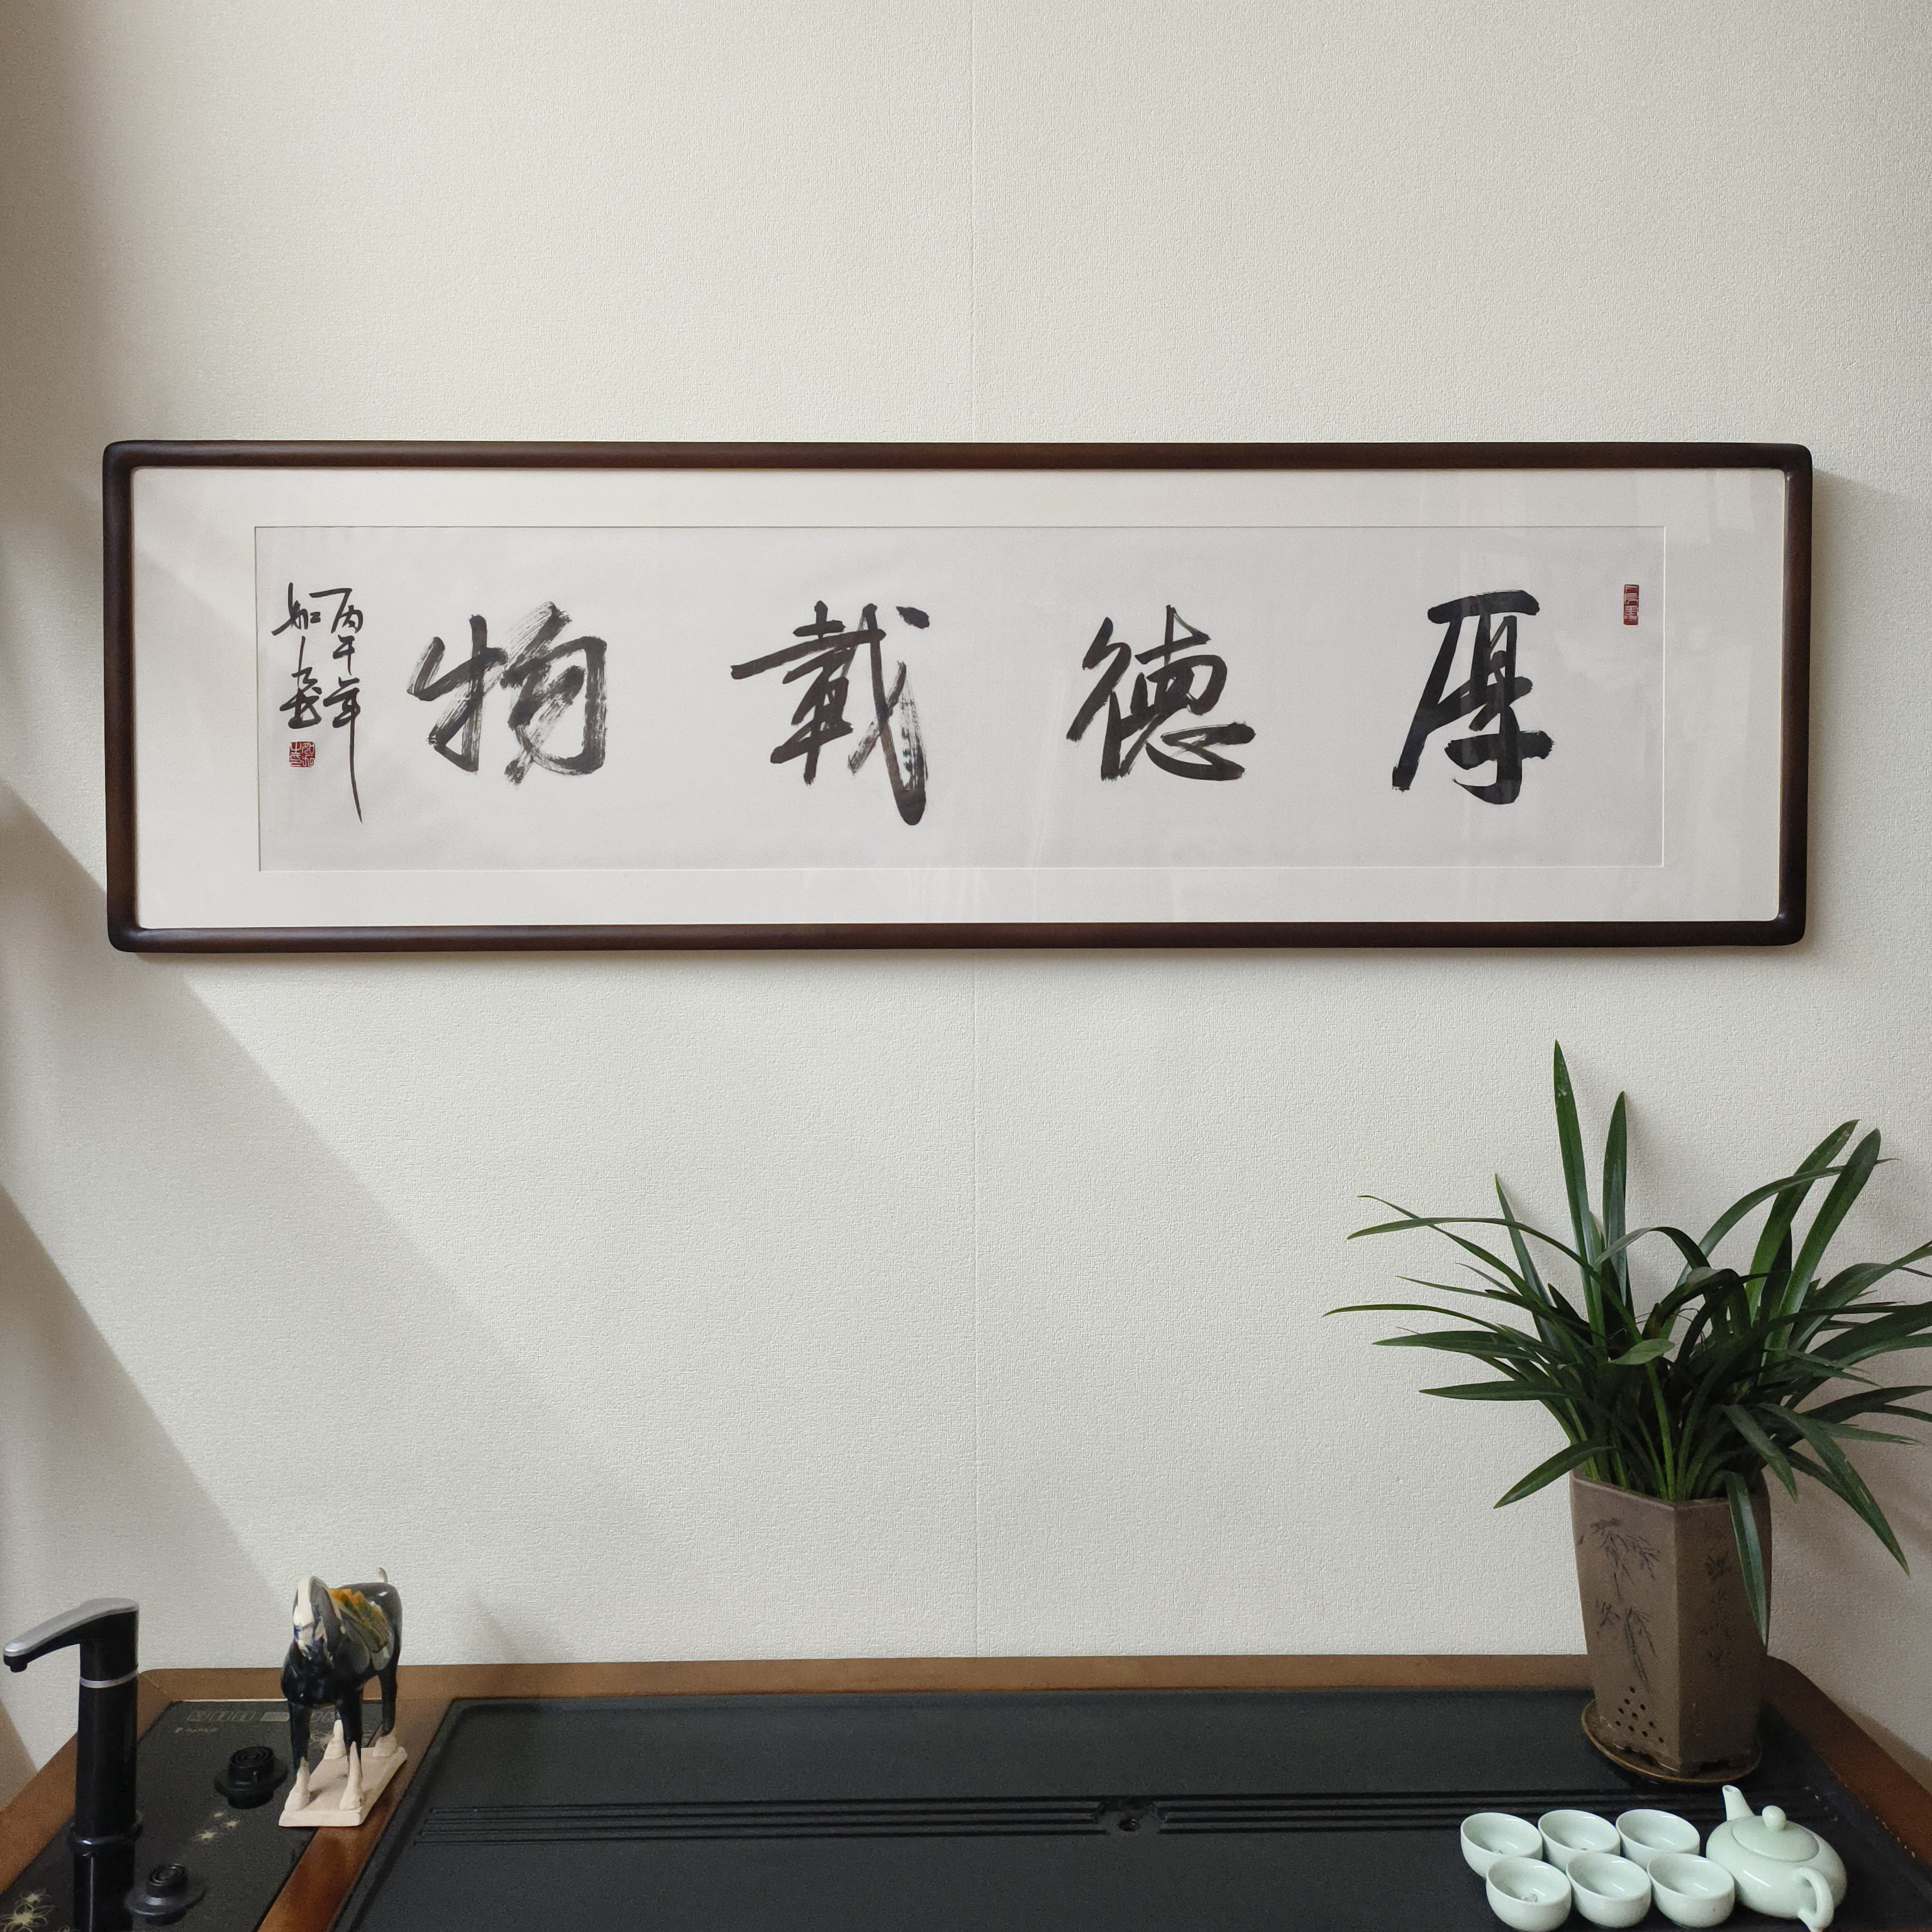 厚德載物
丙午年
如山書